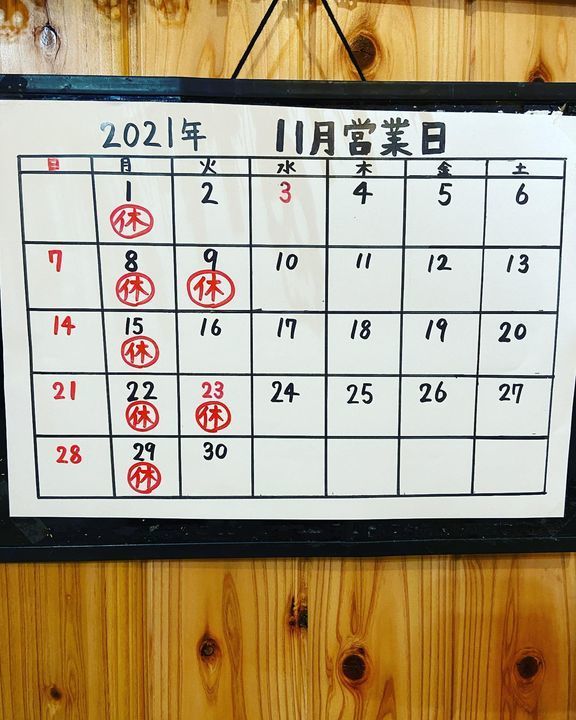 2021年 11月営業日
日 月 火 水 木 金 土
1 2 3 4 5 6
休
7 8 9 10 11 12 13
休 休
14 15 16 17 18 19 20
休
21 22 23 24 25 26 27
休 休
28 29 30
休